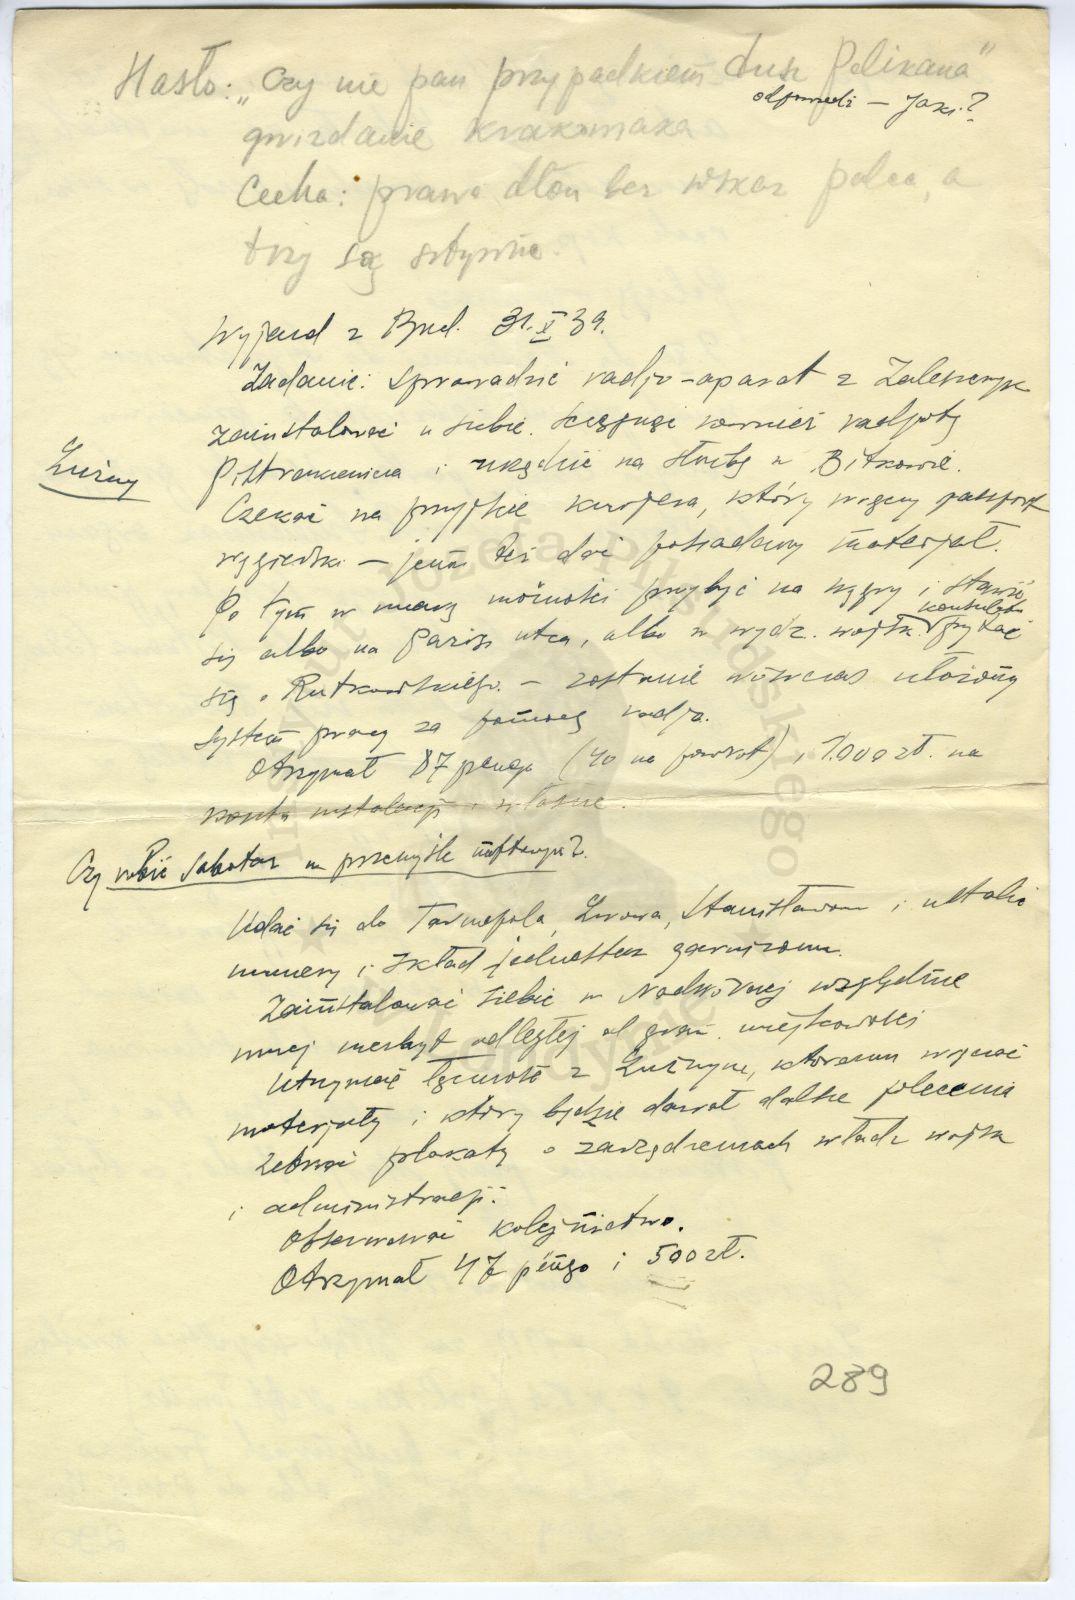 Hasło: „Czy nie pan przypadkiem dusz Pelikana"
odpowiedź — Jaki?
gwizdanie krakowiaka
Cecha: prawa dłoń bez wskaz palca, a
trzy są sztywne.
Wyjazd z Bud. 31.X.39.
Zadanie: sprowadzić radjo-aparat z Zaleszczyk
zainstalować u siebie. Ściągnąć również radjotę
i na służbę w Bitkowie.
Luźny
Czekać na przyjście kurjera, który paszport
węgierski — jemu też dać posiadany materjał.
Po tym w miarę możności przybyć na węgry i stawić
się albo na utca, albo w wydz. wojsk. konsulatu pytać
się o Rutkowskiego. — zostanie wówczas ułożony
system pracy za pomocą radjo.
Otrzymał 87 pengo (40 na powrót) i 1.000 zł. na
koszta instalacji i własne.
Czy robić sabotaż w przemyśle naftowym?
Udać się do Tarnopola, Lwowa, Stanisławowa i ustalić
numery i skład jednostek garnizonu.
Zainstalować siebie w Nadwórnej względnie
innej niezbyt odległej od gran. miejscowości
Utrzymać łączność z Luźnym, któremu
materjały i który będzie dawał dalsze polecenia
Zebrać plakaty o zarządzeniach władz wojsk
i administracji.
Obserwować kolejnictwo.
Otrzymał 47 pengo i 500 zł.
289